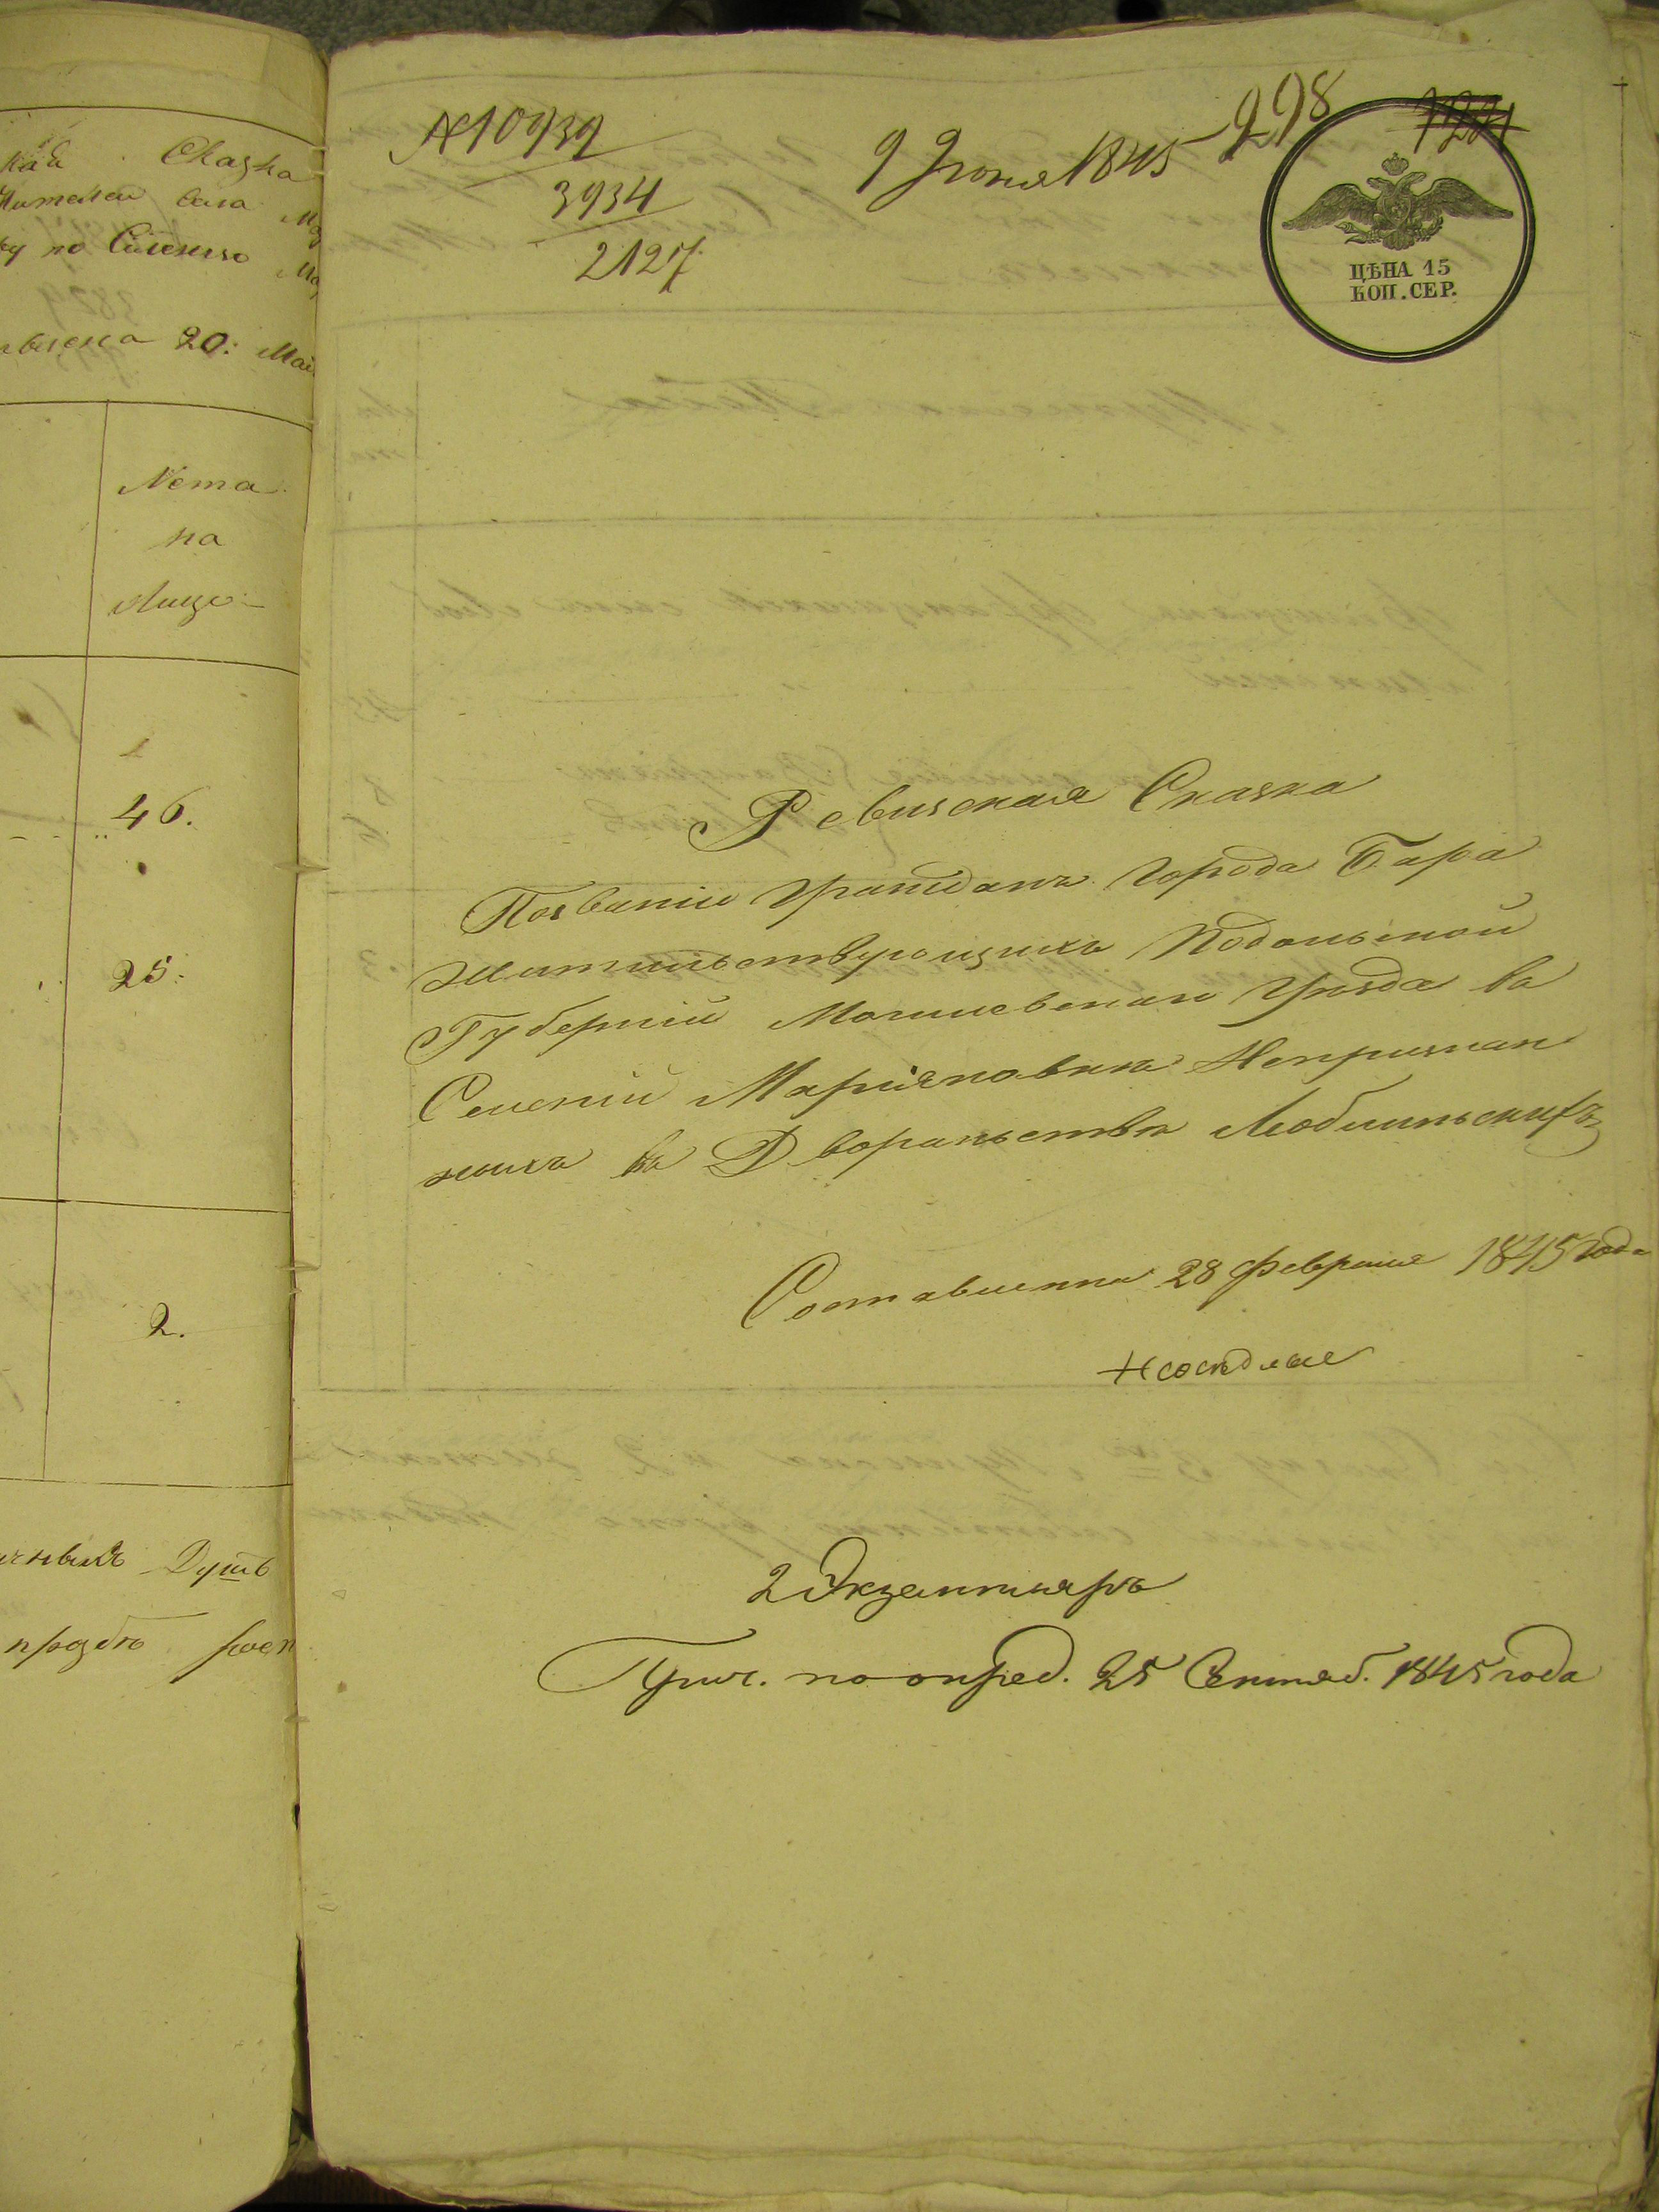 Сказка
Жителей села
по Селению
20. Май
Лета
на
Лицо
1
46.
25.
2.
Душъ
№ 10939
3934
2127
9 Июня 1845
298
1221
ЦѢНА 15
КОП. СЕР.
Ревизская Сказка
Позванію Гражданъ города Бара
жительствующихъ Подольской
Губерніи Могилевскаго Уѣзда въ
Селеніи Маріяновкѣ Непризнан
ныхъ въ Дворянствѣ Любинскихъ
Составленна 28 февраля 1845 года
Неосѣдлые
2 Экземпляръ
Прич. по опред. 25 Сентяб. 1845 года